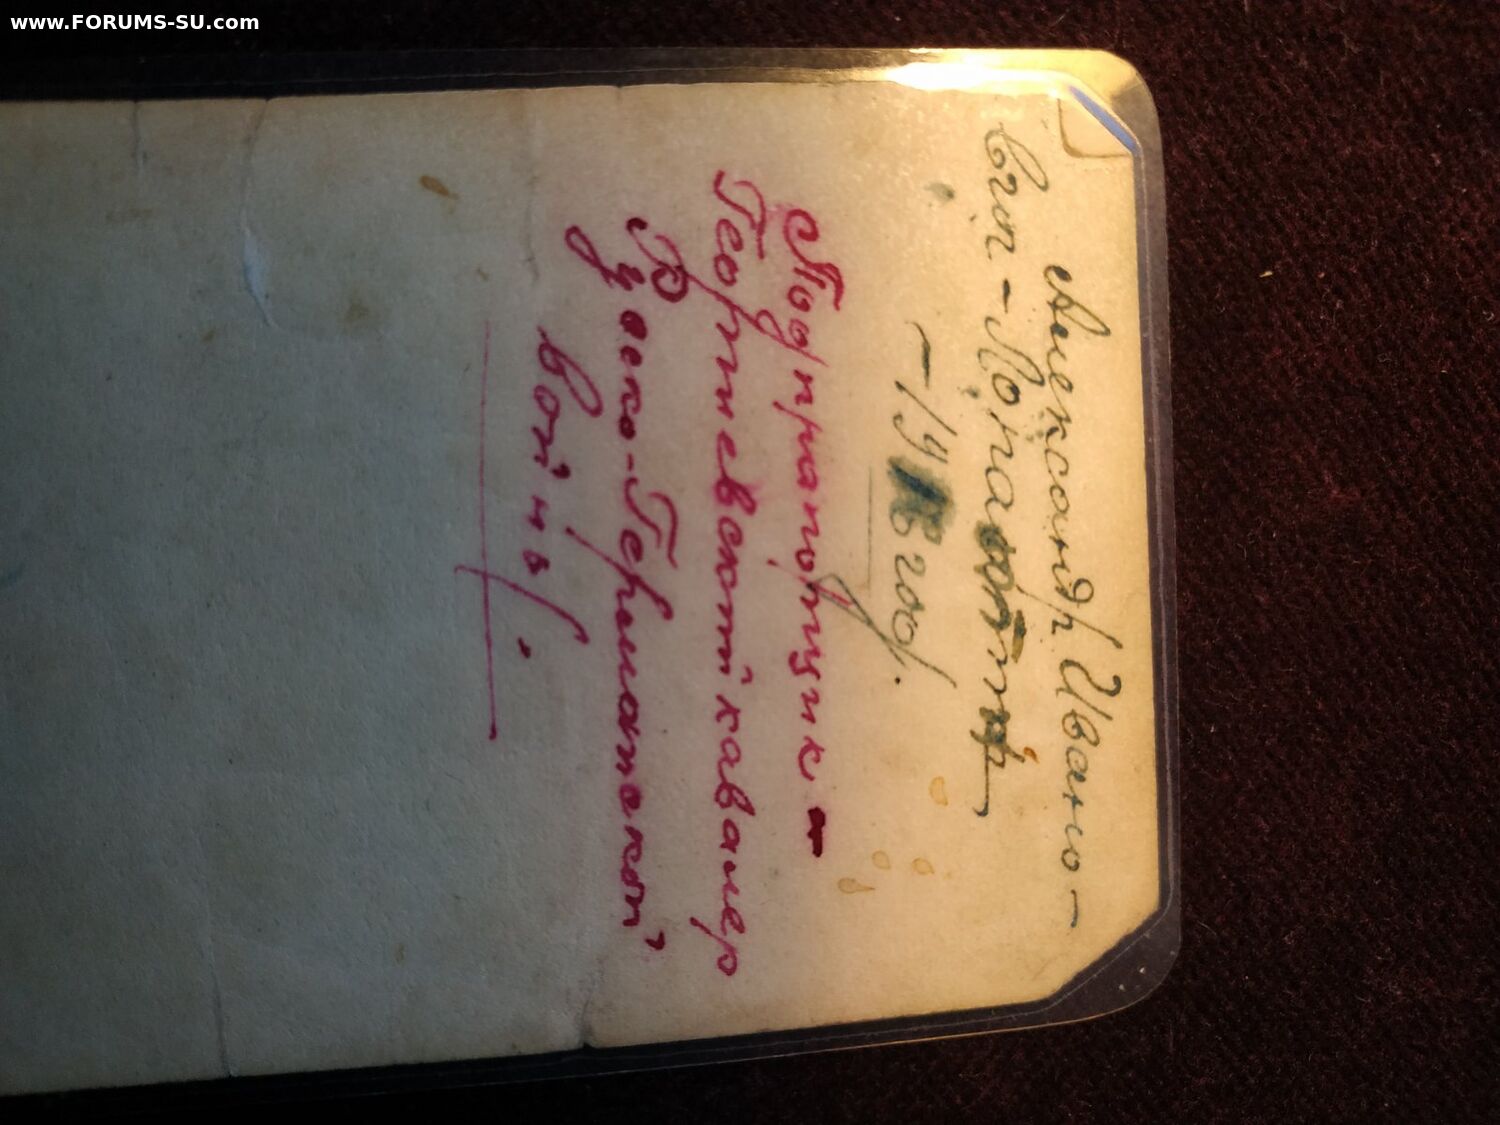 www.FORUMS-SU.com
Александр Ивано-
вич-
год.
Подпрапорщик -
Георгиевский кавалер
Руско-Германской
войны.